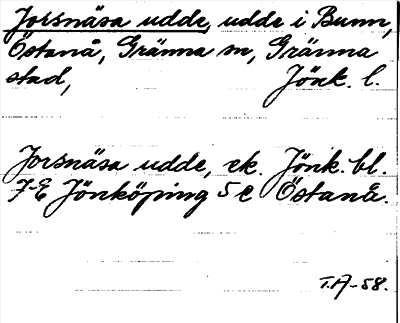 Jorsnäsa udde, udde i Bunn,
Östanå, Gränna sn, Gränna
stad, Jönk. l.
Jorsnäsa udde, ek. Jönk. bl.
7E Jönköping 5 e Östanå.
T.A-58.